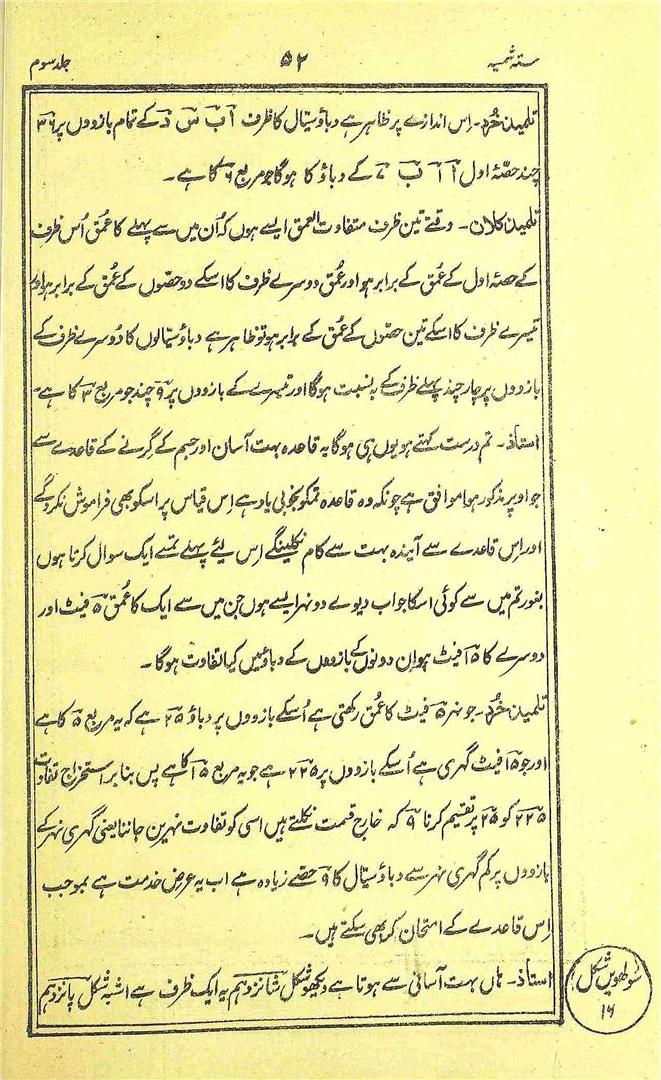 ستہ شمسیہ ۵۲ جلد سوم
تلمیذ خُرد۔ اِس اندازے پر ظاہر ہے دباؤ سیّال کا ظرف اَ بَ سَ دَ کے تمام بازووں پر ۳۶
چند حصّۂ اول آ اَ بَ کے دباؤ کا ہوگا جو مربع ۶ کا ہے۔
تلمیذ کلان۔ وقتے تین ظرف متفاوت العمق ایسے ہوں کہ اُن میں سے پہلے کا عُمق اُس ظرف
کے حصّۂ اول کے عُمق کے برابر ہو اور عُمق دوسرے ظرف کا اسکے دو حصّوں کے عُمق کے برابر ہو اور
تیسرے ظرف کا اسکے تین حصّوں کے عُمق کے برابر ہو تو ظاہر ہے دباؤ سیّالوں کا دُوسرے ظرف کے
بازووں پر چار چند پہلے ظرف کے بہ نسبت ہوگا اور تیسرے کے بازووں پر ۹ چند جو مربع ۳ کا ہے۔
استاذ۔ تم درست کہتے ہو یوں ہی ہوگا یہ قاعدہ بہت آسان اور جسم کے گرنے کے قاعدے سے
جو اوپر مذکور ہوا موافق ہے چونکہ وہ قاعدہ تمکو بخوبی یاد ہے اِس قیاس پر اسکو بھی فراموش نکروگے
اور اِس قاعدے سے آیندہ بہت سے کام نکلینگے اِس لیٔے پہلے تمسے ایک سوال کرتا ہوں
بغور تم میں سے کوئی اسکا جواب دیوے دو نہر ایسے ہوں جن میں سے ایک کا عُمق ۵ فیٹ اور
دوسرے کا ۱۵ فیٹ ہو اِن دونوں کے بازووں کے دباؤ میں کیا تفاوت ہوگا۔
تلمیذ خُرد۔ جو نہر ۵ فیٹ کا عُمق رکھتی ہے اُسکے بازووں پر دباؤ ۲۵ ہے کہ یہ مربع ۵ کا ہے
اور جو ۱۵ فیٹ گہری ہے اُسکے بازووں پر ۲۲۵ ہے جو یہ مربع ۱۵ کا ہے پس بنا بر استخراج تفاوت
۲۲۵ کو ۲۵ پر تقسیم کرنا ۹ کہ خارج قسمت نکلتے ہیں اسی کو تفاوت نہرین جاننا یعنی گہری نہر کے
بازووں پر کم گہری نہر سے دباؤ سیّال کا ۹ حصّے زیادہ ہے اب یہ عرض خدمت ہے بموجب
اِس قاعدے کے امتحان کر بھی سکتے ہیں۔
استاذ۔ ہاں بہت آسانی سے ہوتا ہے دیکھو شکل شانزدہم یہ ایک ظرف ہے اشبہ شکل پانزدہم
سولھویں شکل
۱۶